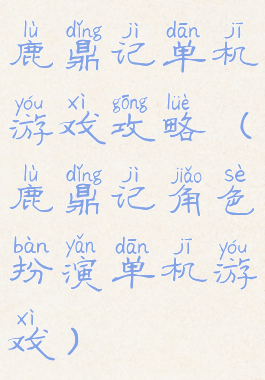 lù dǐng jì dān jī
鹿鼎记单机
yóu xì gōng lüè
游戏攻略（
lù dǐng jì jiǎo sè
鹿鼎记角色
bàn yǎn dān jī yóu
扮演单机游
xì
戏）